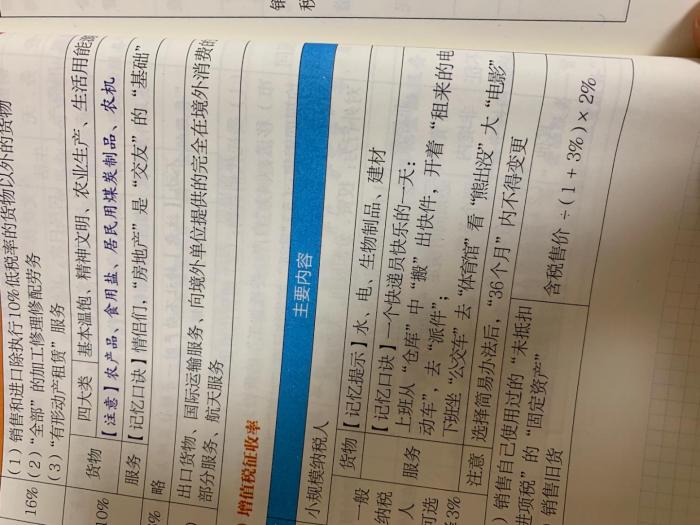 16%
(1) 销售和进口除执行 10%低税率的货物以外的货物
(2) “全部”的加工修理修配劳务
(3) “有形动产租赁”服务
10%
货物
四大类
基本温饱、精神文明、农业生产、生活用能
【注意】农产品、食用盐、居民用煤炭制品、农机
服务
【记忆口诀】情侣们，“房地产”是“交友”的“基础”
%
略
出口货物、国际运输服务、向境外单位提供的完全在境外消费的
部分服务、航天服务
增值税征收率
主要内容
小规模纳税人
一般
纳税
人
可选
3%
货物
【记忆提示】水、电、生物制品、建材
服务
【记忆口诀】一个快递员快乐的一天：
上班从“仓库”中“搬”出快件，开着“租来的电
动车”，去“派件”；
下班坐“公交车”去“体育馆”看“熊出没”大“电影”
注意
选择简易办法后，“36个月”内不得变更
) 销售自己使用过的“未抵扣
进项税”的“固定资产”
销售旧货
含税售价÷(1+3%)×2%